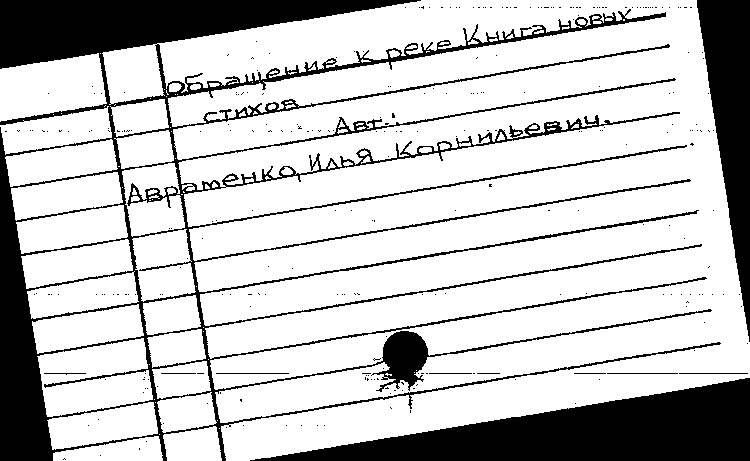 Обращение к реке. Книга новых
стихов
Авт.:
Авраменко, Илья Корнильевич.